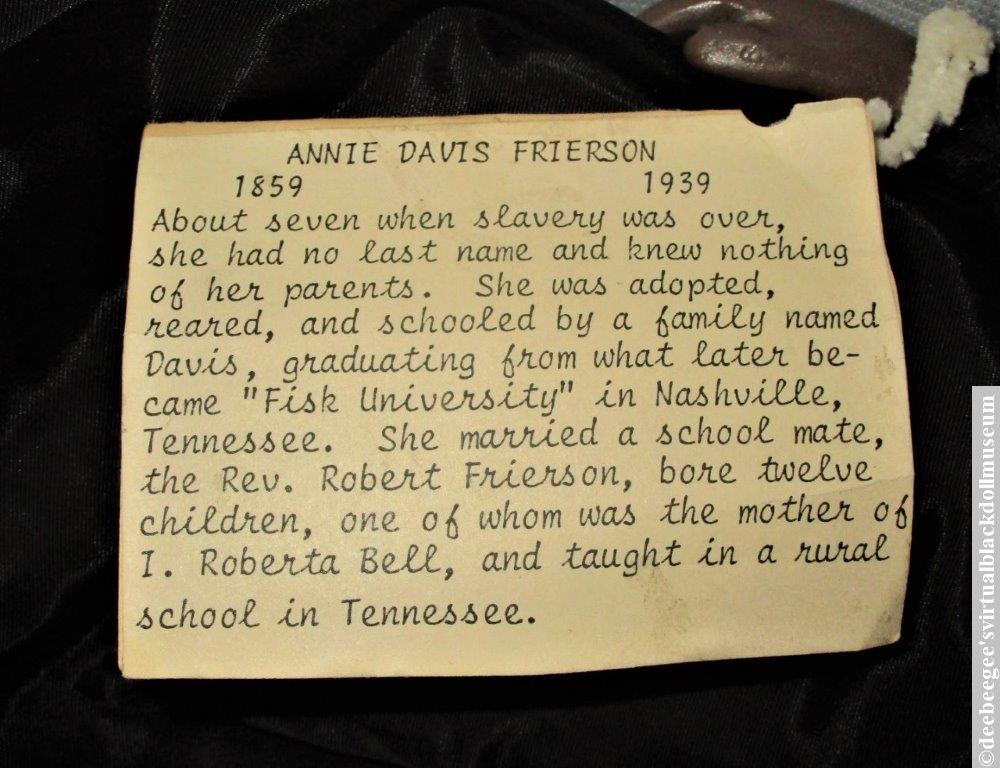 ANNIE DAVIS FRIERSON
1859 1939
About seven when slavery was over,
she had no last name and knew nothing
of her parents. She was adopted,
reared, and schooled by a family named
Davis, graduating from what later be-
came "Fisk University" in Nashville,
Tennessee. She married a school mate,
the Rev. Robert Frierson, bore twelve
children, one of whom was the mother of
I. Roberta Bell, and taught in a rural
school in Tennessee.
©deebeegee'svirtualblackdollmuseum